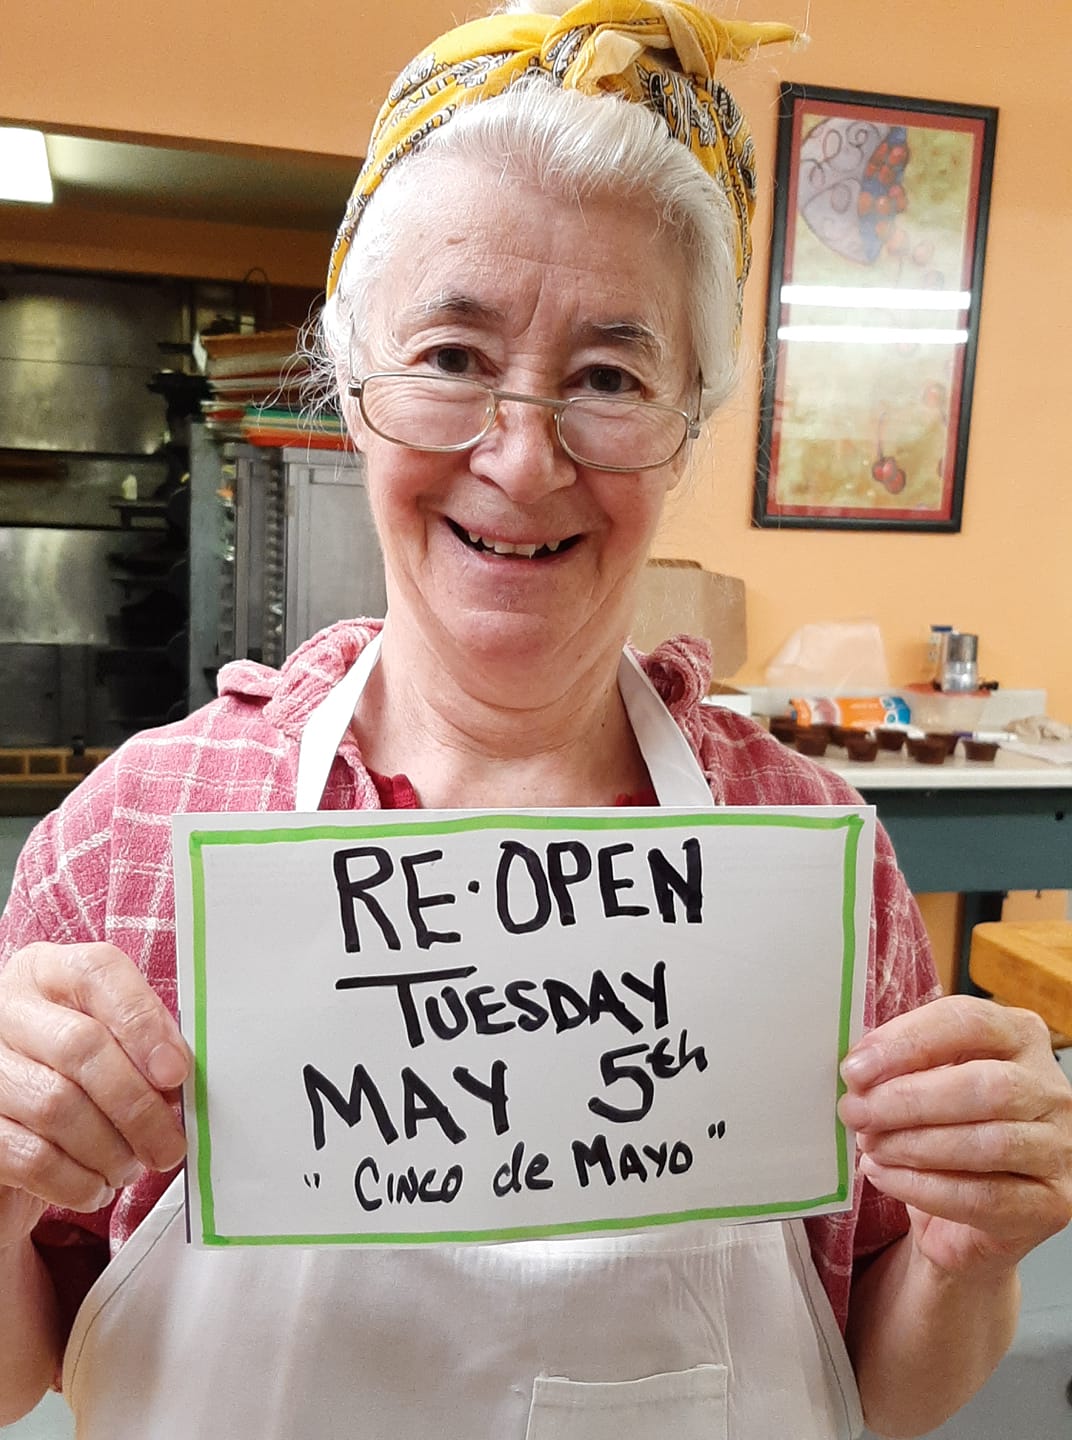 RE·OPEN
TUESDAY
MAY 5th
"CINCO de MAYO"